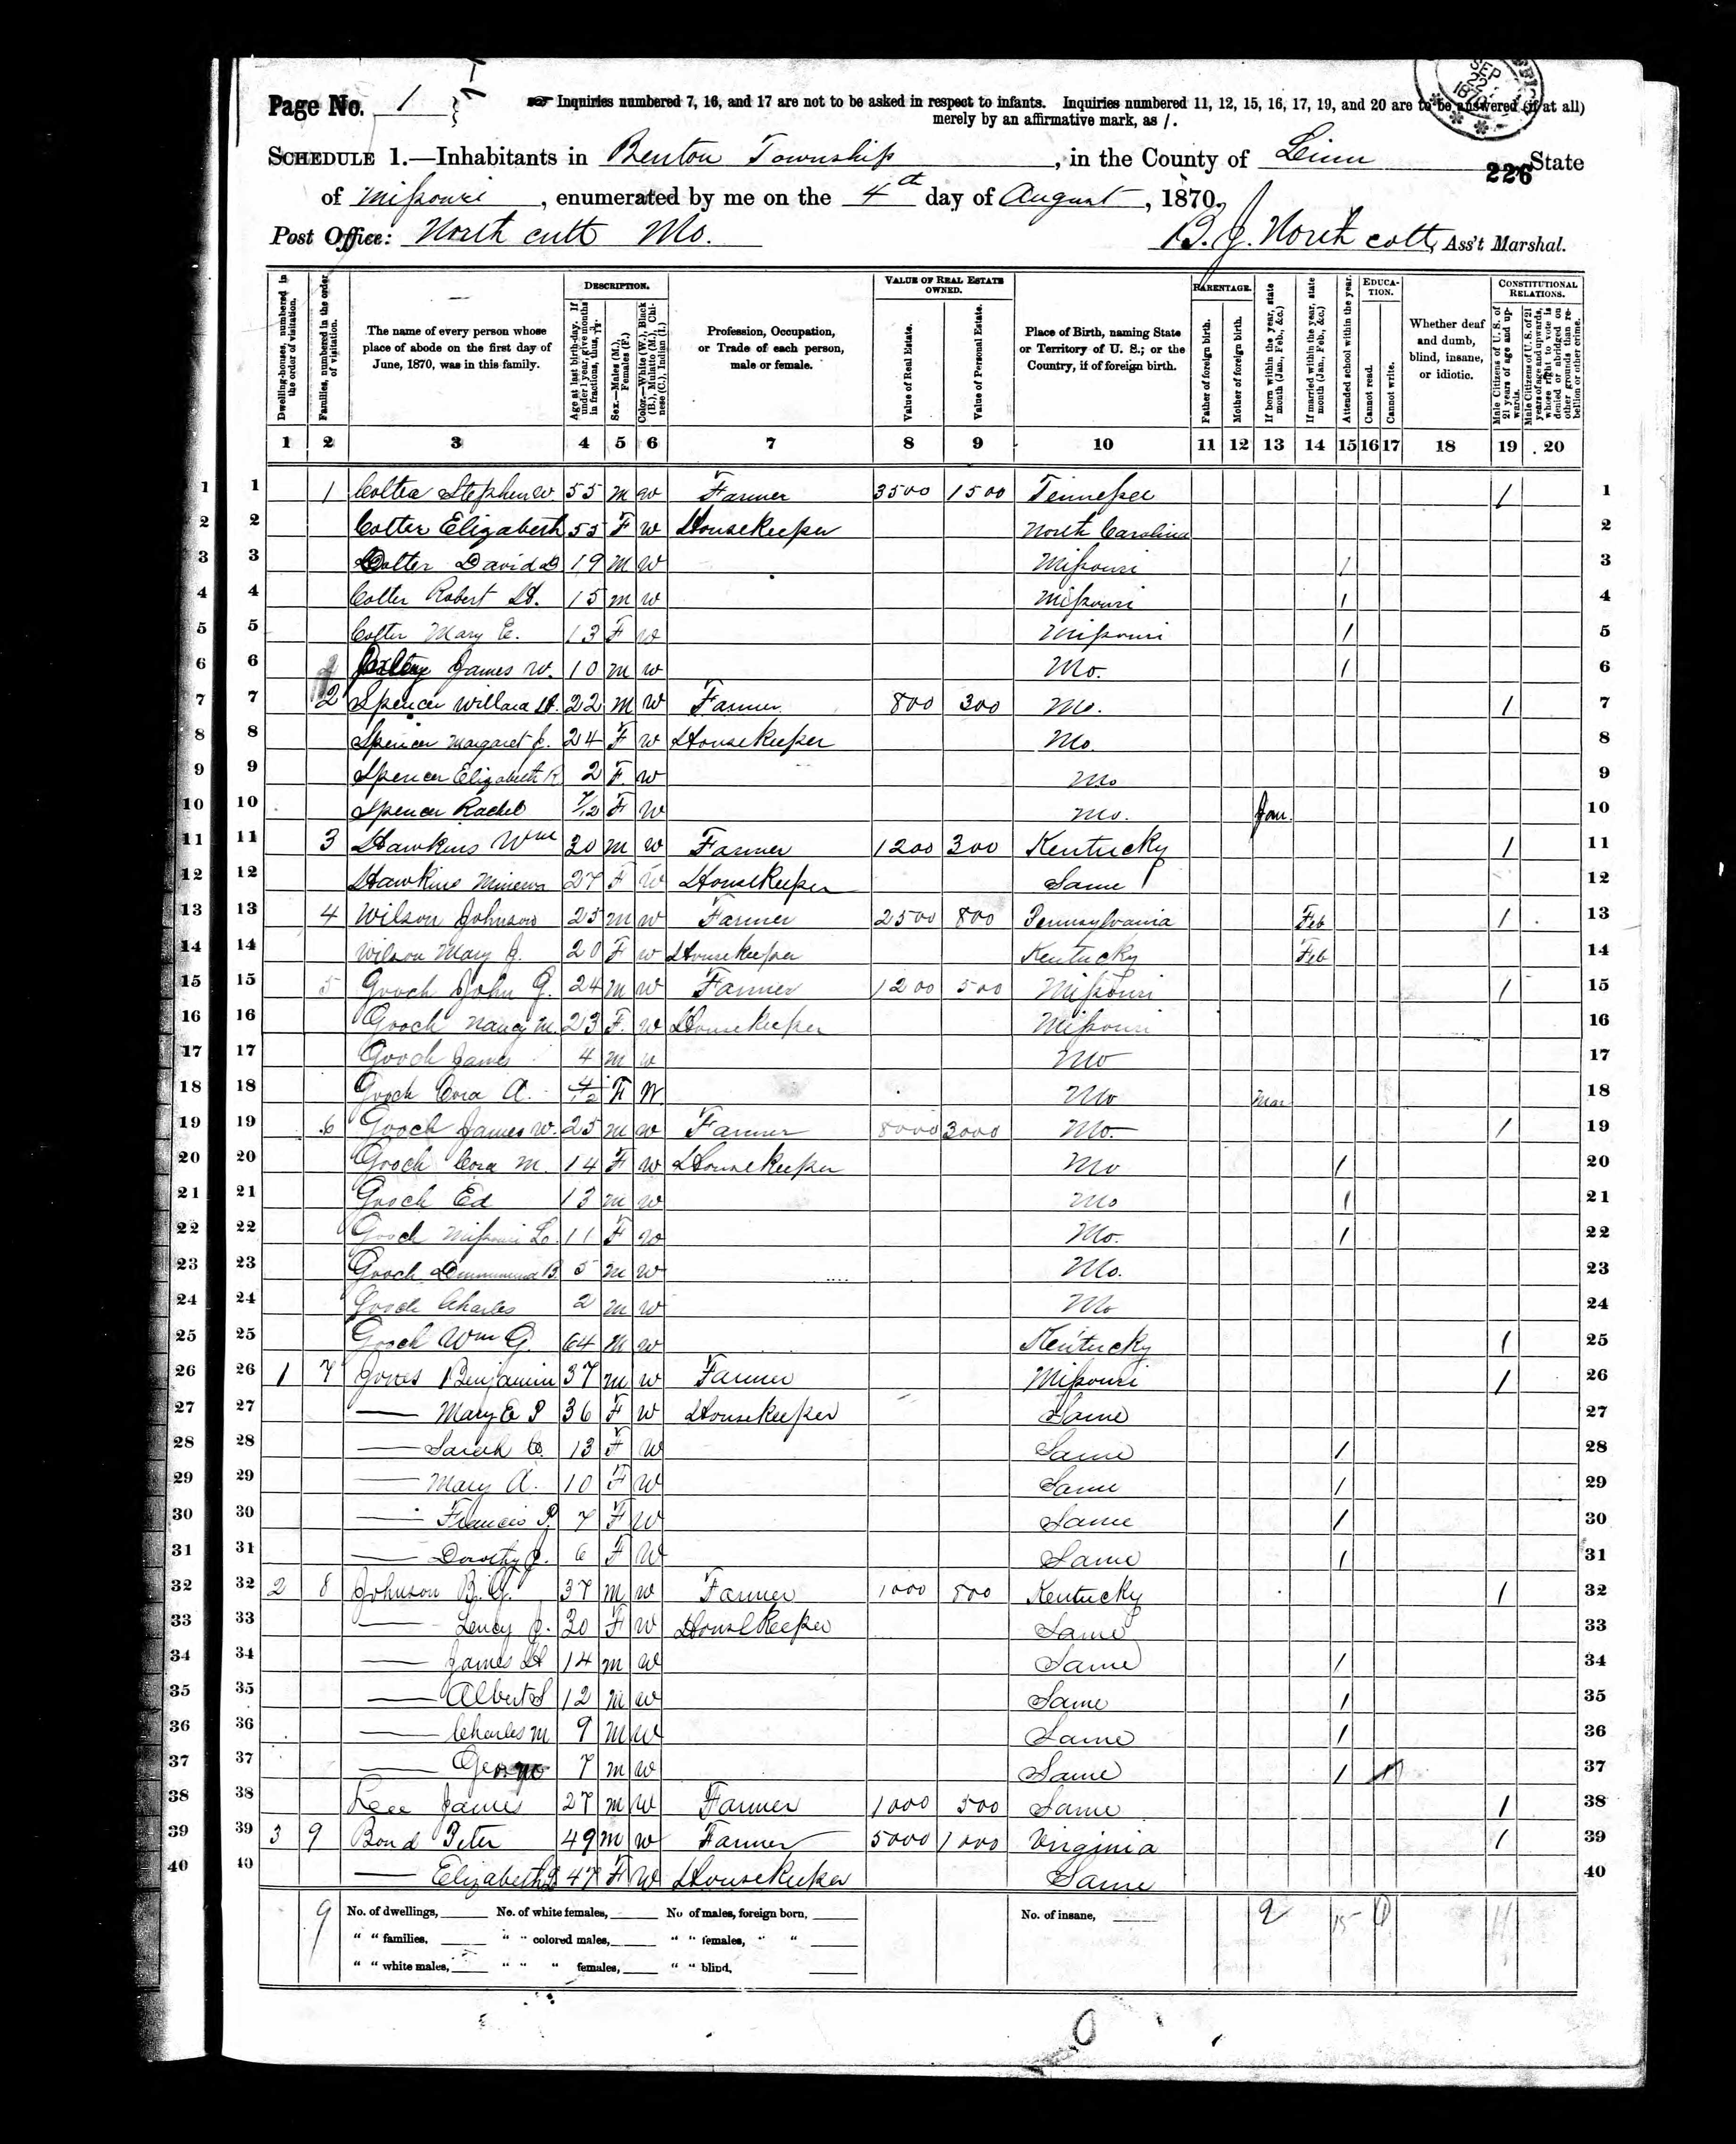 Page No. 1
Inquiries numbered 7, 16, and 17 are not to be asked in respect to infants. Inquiries numbered 11, 12, 15, 16, 17, 19, and 20 are to be answered (if at all)
merely by an affirmative mark, as /.
SCHEDULE 1.—Inhabitants in Benton Township, in the County of Linn State
226
of Missouri, enumerated by me on the 4th day of August, 1870.
Post Office: North cutt Mo. B. J. North cott, Ass't Marshal.
Dwelling-houses, numbered in the order of visitation.
Families, numbered in the order of visitation.
The name of every person whose place of abode on the first day of June, 1870, was in this family.
DESCRIPTION.
Age at last birth-day. If under 1 year, give months in fractions, thus, 3/12.
Sex.—Males (M.), Females (F.)
Color.—White (W.), Black (B.), Mulatto (M.), Chinese (C.), Indian (I.)
Profession, Occupation, or Trade of each person, male or female.
VALUE OF REAL ESTATE OWNED.
Value of Real Estate.
Value of Personal Estate.
Place of Birth, naming State or Territory of U. S.; or the Country, if of foreign birth.
PARENTAGE.
Father of foreign birth.
Mother of foreign birth.
If born within the year, state month (Jan., Feb., &c.)
If married within the year, state month (Jan., Feb., &c.)
Attended school within the year.
EDUCATION.
Cannot read.
Cannot write.
Whether deaf and dumb, blind, insane, or idiotic.
CONSTITUTIONAL RELATIONS.
Male Citizens of U. S. of 21 years of age and upwards.
Male Citizens of U. S. of 21 years of age and upwards, whose right to vote is denied or abridged on other grounds than rebellion or other crime.
1 2 3 4 5 6 7 8 9 10 11 12 13 14 15 16 17 18 19 20
1 1 1 Stephen W 55 m w Farmer 3500 1500 Tennessee / 1
2 2 Cotter Elizabeth 55 F w Housekeeper North Carolina 2
3 3 Cotter David 19 m w Missouri / 3
4 4 Cotter Robert H. 15 m w Missouri / 4
5 5 Cotter Mary E. 13 F w Missouri / 5
6 6 James W. 10 m w Mo. / 6
7 7 2 Spencer Willard H. 22 m w Farmer 800 300 Mo. / 7
8 8 Spencer Margaret J. 24 F w Housekeeper Mo. 8
9 9 Spencer Elizabeth R 2 F w Mo 9
10 10 Spencer Rachel 7/12 F w Mo. Jan. 10
11 11 3 Hawkins Wm 30 m w Farmer 1200 300 Kentucky / 11
12 12 Hawkins Minerva 27 F w Housekeeper Same 12
13 13 4 Wilson Johnson 25 m w Farmer 2500 800 Pennsylvania Feb / 13
14 14 Wilson Mary J. 20 F w Housekeeper Kentucky Feb 14
15 15 5 Gooch John G. 24 m w Farmer 1200 500 Missouri / 15
16 16 Gooch Nancy M. 23 F. w Housekeeper Missouri 16
17 17 Gooch James 4 m w Mo 17
18 18 Gooch Cora A. 4/12 F W. Mo Mar 18
19 19 6 Gooch James W. 25 m w Farmer 8000 3000 Mo. / 19
20 20 Gooch Cora M. 14 F w Housekeeper Mo / 20
21 21 Gooch Ed 13 m w Mo / 21
22 22 Gooch Missouri L. 11 F w Mo. / 22
23 23 Gooch B. 5 m w Mo. 23
24 24 Gooch Charles 2 m w Mo 24
25 25 Gooch Wm G. 64 m w Kentucky / 25
26 26 1 7 Jones Benjamin 37 m w Farmer Missouri / 26
27 27 — Mary E P 36 F w Housekeeper Same 27
28 28 — Sarah 13 F w Same / 28
29 29 — Mary A. 10 F w Same / 29
30 30 — Francis P. 7 F w Same / 30
31 31 — Dorothy J. 6 F W Same / 31
32 32 2 8 Johnson B. G. 37 m w Farmer 1000 800 Kentucky / 32
33 33 — J. 30 F w Housekeeper Same 33
34 34 — James H 14 m w Same / 34
35 35 — Albert S 12 m w Same / 35
36 36 — Charles M 9 m w Same / 36
37 37 — George 7 m w Same / 37
38 38 Lee James 27 m w Farmer 1000 500 Same / 38
39 39 3 9 Bond Peter 49 m w Farmer 5000 1000 Virginia / 39
40 40 — Elizabeth 47 F W Housekeeper Same 40
9 No. of dwellings, No. of white females, No of males, foreign born, No. of insane, 2 15 11
" " families, " " colored males, " " females, " "
" " white males, " " " females, " " blind,